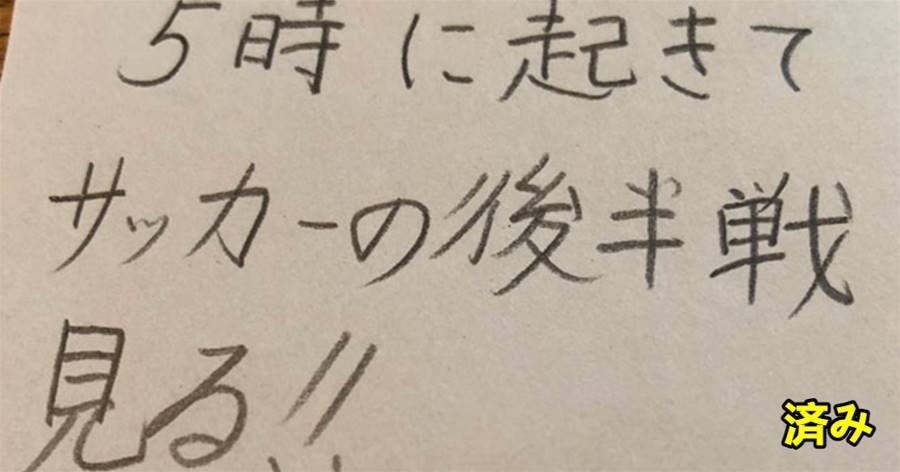 5時に起きて
サッカーの後半戦
見る!!
済み